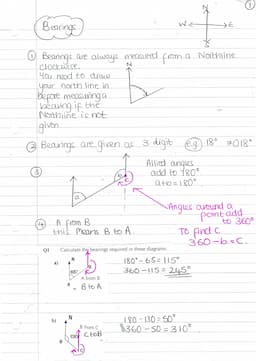 ①
Bearings
N
W E
S
① Bearings are always measured from a North line
clockwise.
You need to draw
your north line in
before measuring a
bearing if the
North line is not
given
N
② Bearings are given as 3 digit eg) 18° → 018°
③
Allied angles
add to 180°
a+b=180°
a
b
c
Angles around a
point add
to 360°
To find c
360-b=c.
④ A from B
this means B to A
Q1 Calculate the bearings required in these diagrams.
a)
N
65°
A from B
B to A
180°-65=115°
360-115=245°
b)
N
130°
B from C
C to B
180-130=50°
360-50=310°